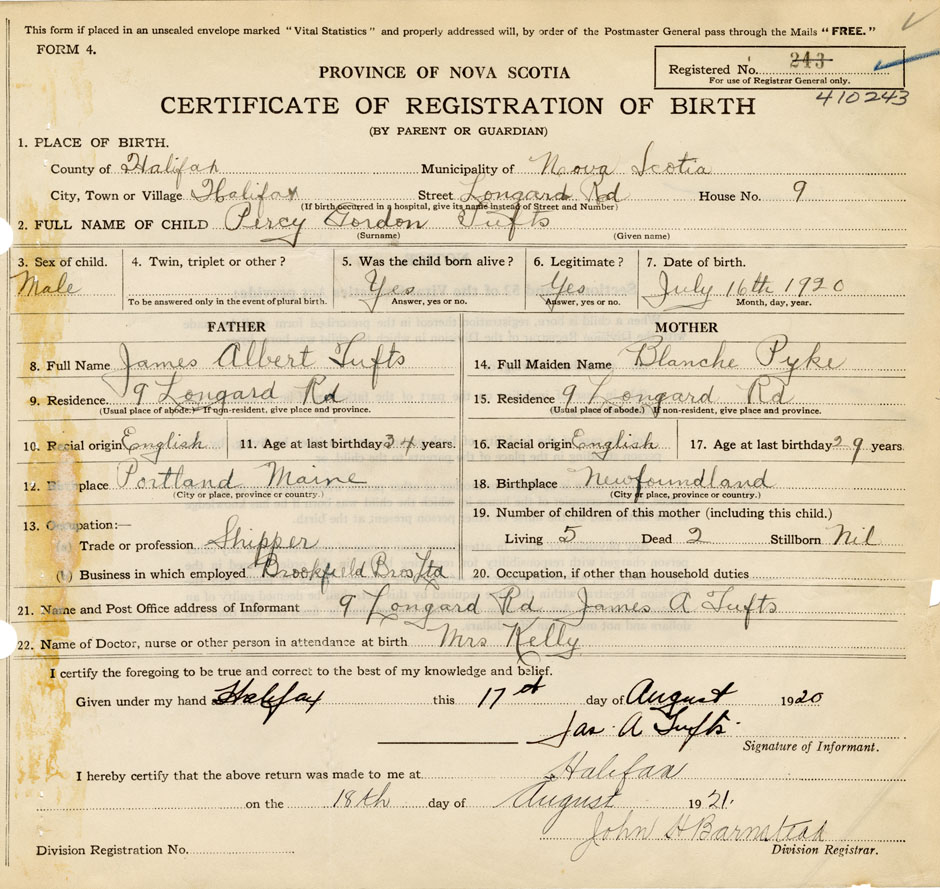 This form if placed in an unsealed envelope marked "Vital Statistics" and properly addressed will, by order of the Postmaster General pass through the Mails "FREE."
FORM 4.
Registered No. 243
For use of Registrar General only.
410243
PROVINCE OF NOVA SCOTIA
CERTIFICATE OF REGISTRATION OF BIRTH
(BY PARENT OR GUARDIAN)
1. PLACE OF BIRTH.
County of Halifax Municipality of Nova Scotia
City, Town or Village Halifax Street Longard Rd House No. 9
(If birth occurred in a hospital, give its name instead of Street and Number)
2. FULL NAME OF CHILD Percy Gordon Tufts
(Surname) (Given name)
3. Sex of child. 4. Twin, triplet or other? 5. Was the child born alive? 6. Legitimate? 7. Date of birth.
Male Yes Yes July 16th 1920
To be answered only in the event of plural birth. Answer, yes or no. Answer, yes or no. Month, day, year.
FATHER MOTHER
8. Full Name James Albert Tufts 14. Full Maiden Name Blanche Pyke
9. Residence. 9 Longard Rd 15. Residence 9 Longard Rd
(Usual place of abode.) If non-resident, give place and province. (Usual place of abode.) If non-resident, give place and province.
10. Racial origin English 11. Age at last birthday 34 years. 16. Racial origin English 17. Age at last birthday 29 years
12. place Portland Maine 18. Birthplace Newfoundland
(City or place, province or country.) (City or place, province or country.)
13. Occupation:— 19. Number of children of this mother (including this child.)
Trade or profession Shipper Living 5 Dead 2 Stillborn Nil
Business in which employed Brookfield Bros Ltd 20. Occupation, if other than household duties
21. Name and Post Office address of Informant 9 Longard Rd James A Tufts
22. Name of Doctor, nurse or other person in attendance at birth Mrs Kelly
I certify the foregoing to be true and correct to the best of my knowledge and belief.
Given under my hand Halifax this 17th day of August 1920
Jas. A Tufts.
Signature of Informant.
I hereby certify that the above return was made to me at Halifax
on the 18th day of August 1921.
John H Barnstead
Division Registration No. Division Registrar.